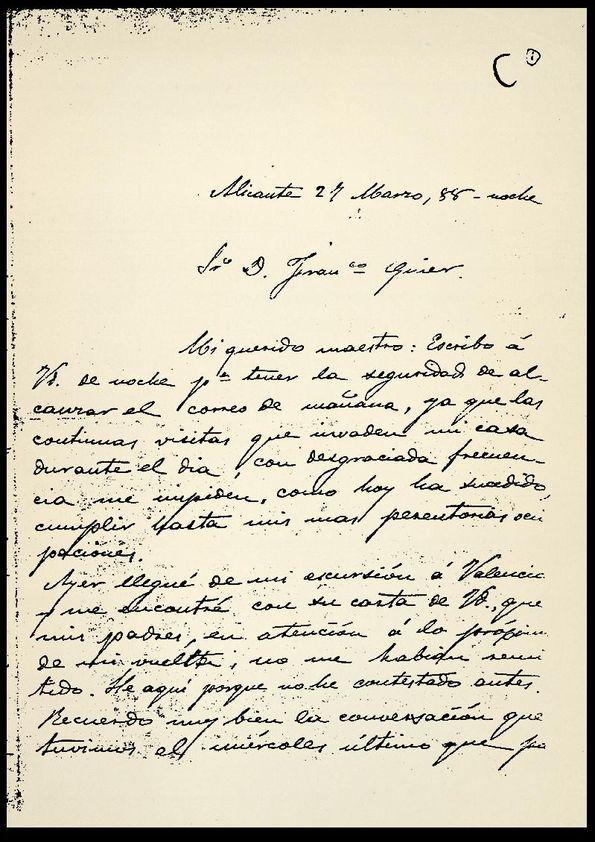 Alicante 27 Marzo, 88 - noche
Sr. D. Franco Giner.
Mi querido maestro: Escribo á
Vd. de noche pa tener la seguridad de al-
canzar el correo de mañana, ya que las
continuas visitas que invaden mi casa
durante el dia, con desgraciada frecuen-
cia me impiden, como hoy ha sucedido,
cumplir hasta mis mas perentorias ocu
paciones.
Ayer llegué de mi escursión á Valencia
y me encontré con su carta de Vd., que
mis padres, en atención á lo próximo
de mi vuelta, no me habían remi
tido. He aquí porque no he contestado antes.
Recuerdo muy bien la conversación que
tuvimos el miércoles último que pa